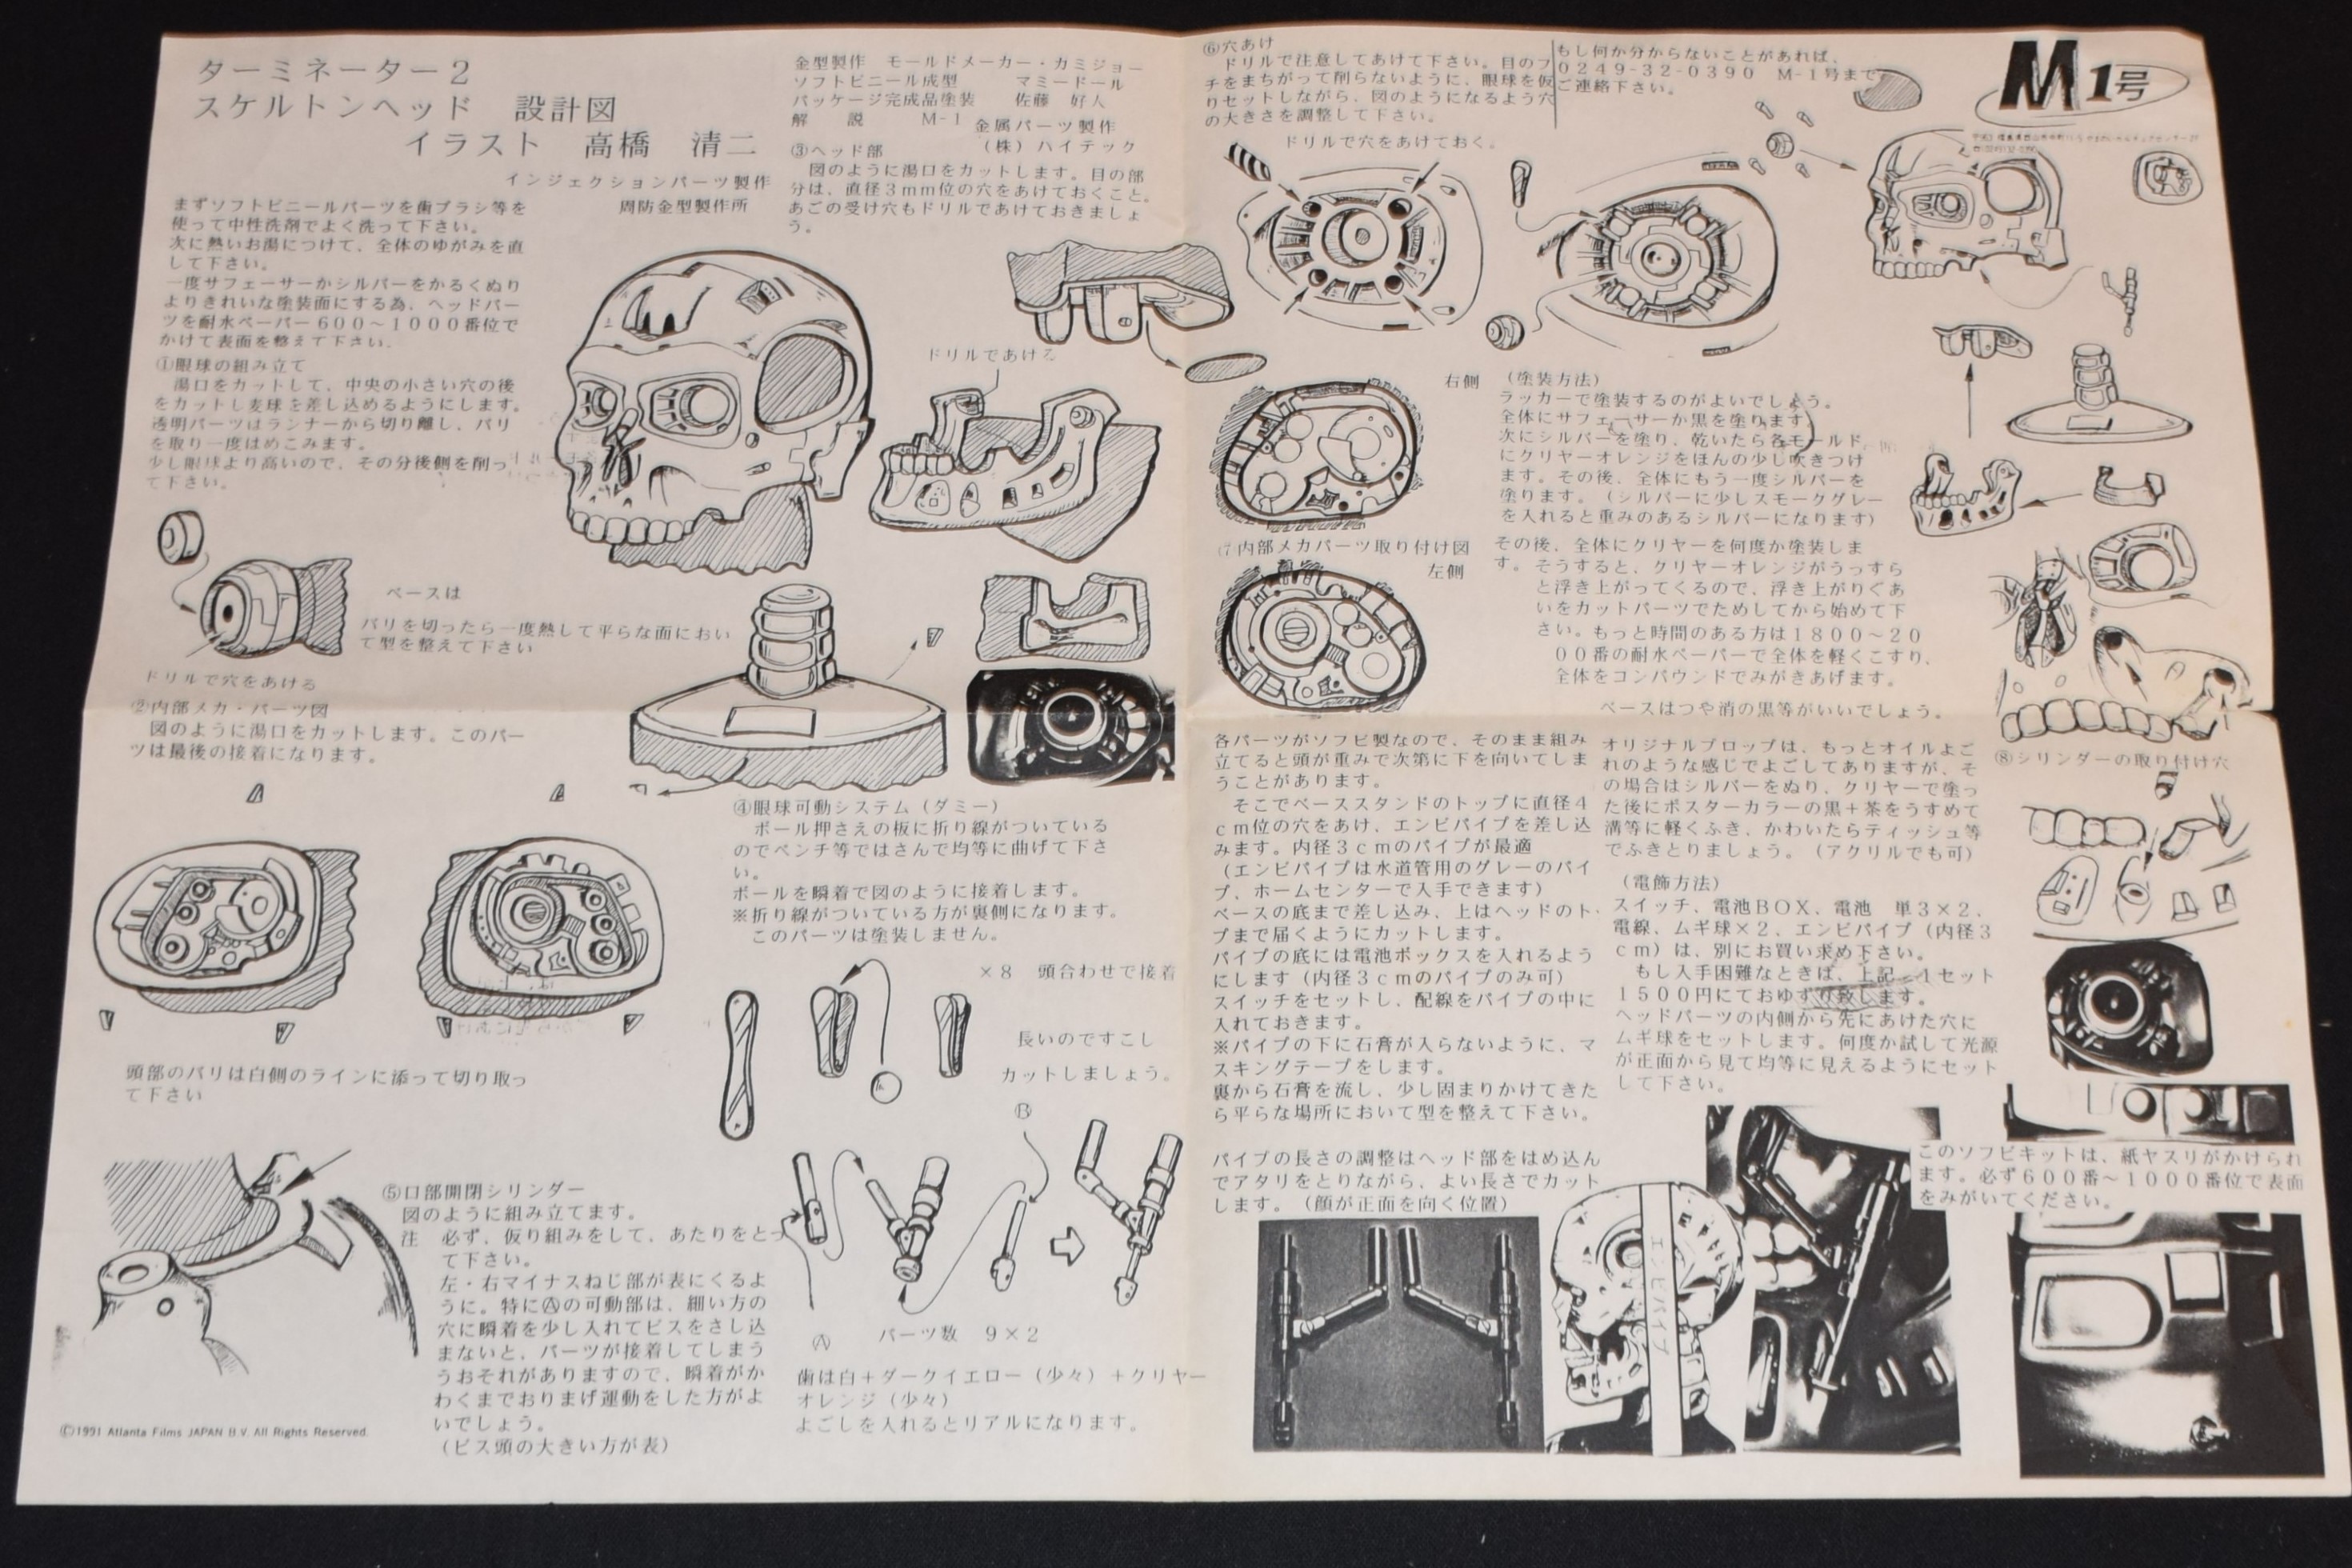 ターミネーター2
スケルトンヘッド　設計図
イラスト　高橋　清二
インジェクションパーツ製作
周防金型製作所
金型製作　モールドメーカー・カミジョー
ソフトビニール成型　マミードール
パッケージ完成品塗装　佐藤　好人
解　説　M-1
金属パーツ製作
(株)ハイテック
まずソフトビニールパーツを歯ブラシ等を
使って中性洗剤でよく洗って下さい。
次に熱いお湯につけて、全体のゆがみを直
して下さい。
一度サフェーサーかシルバーをかるくぬり
よりきれいな塗装面にする為、ヘッドパー
ツを耐水ペーパー600～1000番位で
かけて表面を整えて下さい。
①眼球の組み立て
湯口をカットして、中央の小さい穴の後
をカットし麦球を差し込めるようにします。
透明パーツはランナーから切り離し、バリ
を取り一度はめこみます。
少し眼球より高いので、その分後側を削っ
て下さい。
ベースは
バリを切ったら一度熱して平らな面におい
て型を整えて下さい
ドリルで穴をあける
②内部メカ・パーツ図
図のように湯口をカットします。このパー
ツは最後の接着になります。
頭部のバリは白側のラインに添って切り取っ
て下さい
③ヘッド部
図のように湯口をカットします。目の部
分は、直径3mm位の穴をあけておくこと。
あごの受け穴もドリルであけておきましょ
う。
ドリルであける
④眼球可動システム(ダミー)
ボール押さえの板に折り線がついている
のでペンチ等ではさんで均等に曲げて下さ
い。
ボールを瞬着で図のように接着します。
※折り線がついている方が裏側になります。
このパーツは塗装しません。
×8　頭合わせで接着
長いのですこし
カットしましょう。
Ⓑ
⑤口部開閉シリンダー
図のように組み立てます。
注　必ず、仮り組みをして、あたりをとっ
て下さい。
左・右マイナスねじ部が表にくるよ
うに。特にⒶの可動部は、細い方の
穴に瞬着を少し入れてビスをさし込
まないと、パーツが接着してしまう
うおそれがありますので、瞬着がか
わくまでおりまげ運動をした方がよ
いでしょう。
(ビス頭の大きい方が表)
Ⓐ
パーツ数　9×2
歯は白+ダークイエロー(少々)+クリヤー
オレンジ(少々)
よごしを入れるとリアルになります。
©1991 Atlanta Films JAPAN B.V. All Rights Reserved.
⑥穴あけ
ドリルで注意してあけて下さい。目のフ
チをまちがって削らないように、眼球を仮
りセットしながら、図のようになるよう穴
の大きさを調整して下さい。
もし何か分からないことがあれば、
0249-32-0390　M-1号まで
ご連絡下さい。
M1号
ドリルで穴をあけておく。
右側
⑦内部メカパーツ取り付け図
左側
(塗装方法)
ラッカーで塗装するのがよいでしょう。
全体にサフェーサーか黒を塗ります)
次にシルバーを塗り、乾いたら各モールド
にクリヤーオレンジをほんの少し吹きつけ
ます。その後、全体にもう一度シルバーを
塗ります。(シルバーに少しスモークグレー
を入れると重みのあるシルバーになります)
その後、全体にクリヤーを何度か塗装しま
す。そうすると、クリヤーオレンジがうっすら
と浮き上がってくるので、浮き上がりぐあ
いをカットパーツでためしてから始めて下
さい。もっと時間のある方は1800～20
00番の耐水ペーパーで全体を軽くこすり、
全体をコンパウンドでみがきあげます。
ベースはつや消の黒等がいいでしょう。
各パーツがソフビ製なので、そのまま組み
立てると頭が重みで次第に下を向いてしま
うことがあります。
そこでベーススタンドのトップに直径4
cm位の穴をあけ、エンビパイプを差し込
みます。内径3cmのパイプが最適
(エンビパイプは水道管用のグレーのパイ
プ、ホームセンターで入手できます)
ベースの底まで差し込み、上はヘッドのト
プまで届くようにカットします。
パイプの底には電池ボックスを入れるよう
にします(内径3cmのパイプのみ可)
スイッチをセットし、配線をパイプの中に
入れておきます。
※パイプの下に石膏が入らないように、マ
スキングテープをします。
裏から石膏を流し、少し固まりかけてきた
ら平らな場所において型を整えて下さい。
パイプの長さの調整はヘッド部をはめ込ん
でアタリをとりながら、よい長さでカット
します。(顔が正面を向く位置)
オリジナルプロップは、もっとオイルよご
れのような感じでよごしてありますが、そ
の場合はシルバーをぬり、クリヤーで塗っ
た後にポスターカラーの黒+茶をうすめて
溝等に軽くふき、かわいたらティッシュ等
でふきとりましょう。(アクリルでも可)
(電飾方法)
スイッチ、電池BOX、電池　単3×2、
電線、ムギ球×2、エンビパイプ(内径3
cm)は、別にお買い求め下さい。
もし入手困難なときは、上記 1セット
1500円にておゆずり致します。
ヘッドパーツの内側から先にあけた穴に
ムギ球をセットします。何度か試して光源
が正面から見て均等に見えるようにセット
して下さい。
⑧シリンダーの取り付け穴
エンビパイプ
このソフビキットは、紙ヤスリがかけられ
ます。必ず600番～1000番位で表面
をみがいてください。